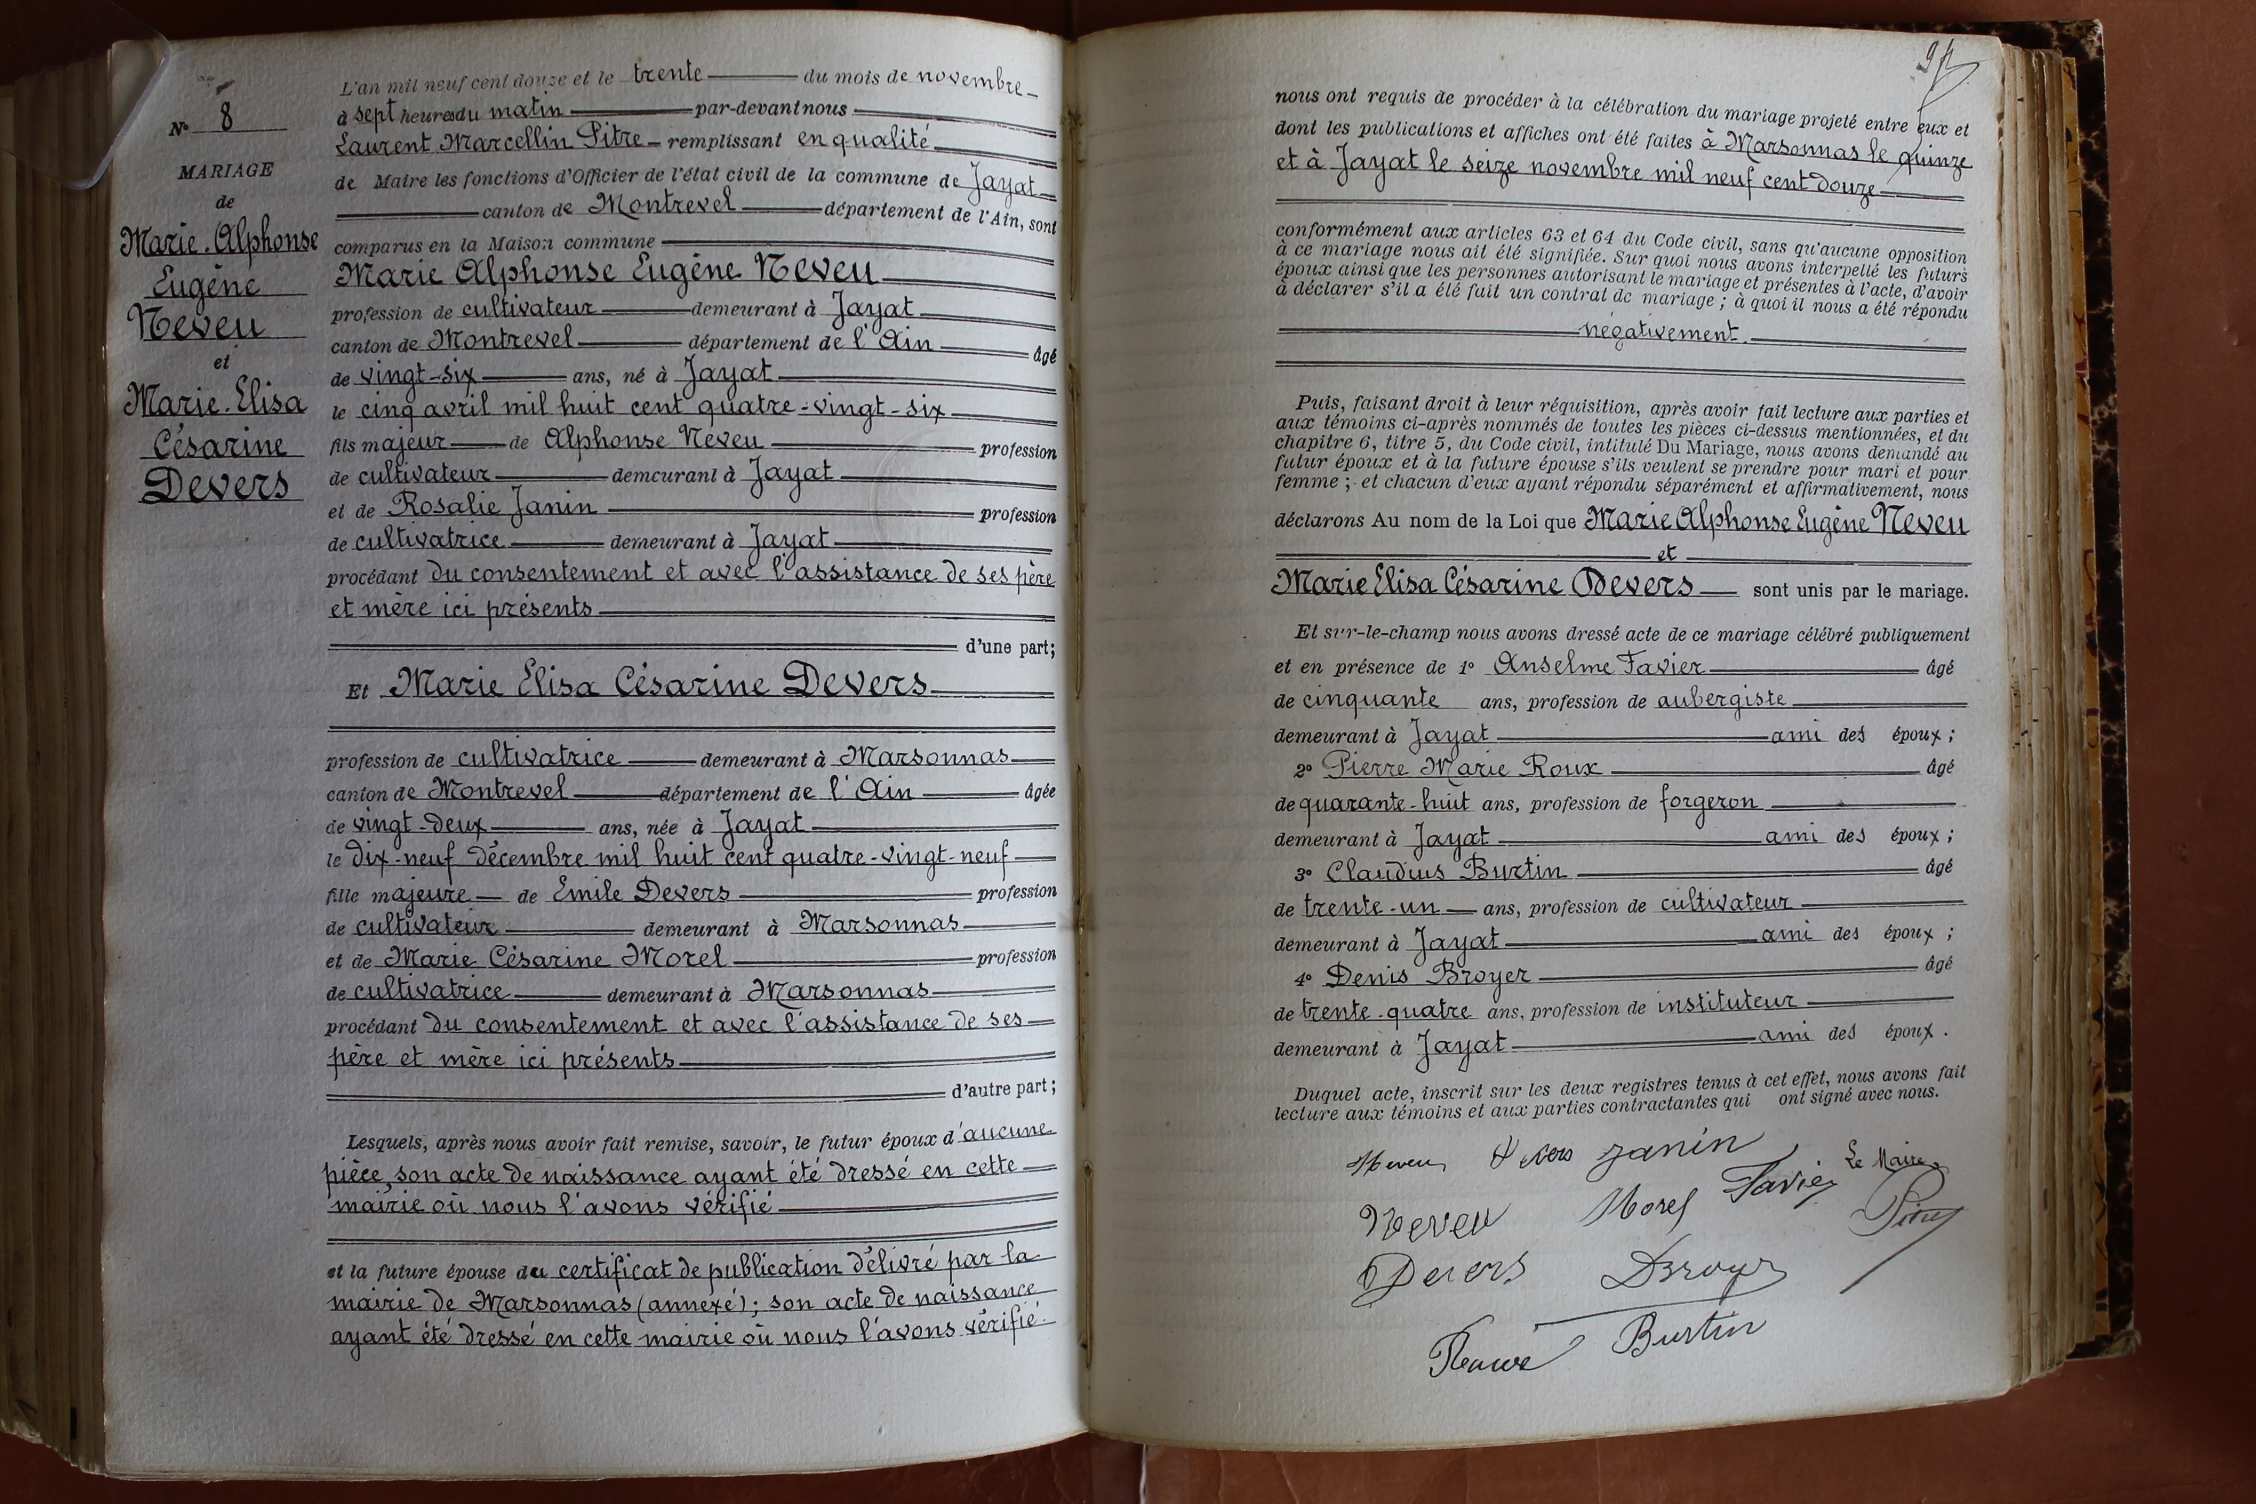 N° 8
MARIAGE
de
Marie-Alphonse
Eugène
Neveu
et
Marie-Elisa
Césarine
Devers
L'an mil neuf cent douze et le trente du mois de novembre
à sept heures du matin par-devant nous
Laurent Marcellin Pitre remplissant en qualité
de Maire les fonctions d'Officier de l'état civil de la commune de Jayat
canton de Montrevel département de l'Ain, sont
comparus en la Maison commune
Marie Alphonse Eugène Neveu
profession de cultivateur demeurant à Jayat
canton de Montrevel département de l'Ain âgé
de vingt-six ans, né à Jayat
le cinq avril mil huit cent quatre-vingt-six
fils majeur de Alphonse Neveu profession
de cultivateur demeurant à Jayat
et de Rosalie Janin profession
de cultivatrice demeurant à Jayat
procédant du consentement et avec l'assistance de ses père
et mère ici présents
d'une part;
Et Marie Elisa Césarine Devers
profession de cultivatrice demeurant à Marsonnas
canton de Montrevel département de l'Ain âgée
de vingt-deux ans, née à Jayat
le dix-neuf décembre mil huit cent quatre-vingt-neuf
fille majeure de Emile Devers profession
de cultivateur demeurant à Marsonnas
et de Marie Césarine Morel profession
de cultivatrice demeurant à Marsonnas
procédant du consentement et avec l'assistance de ses
père et mère ici présents
d'autre part;
Lesquels, après nous avoir fait remise, savoir, le futur époux d'aucune
pièce, son acte de naissance ayant été dressé en cette
mairie où nous l'avons vérifié
et la future épouse du certificat de publication délivré par la
mairie de Marsonnas (annexé); son acte de naissance
ayant été dressé en cette mairie où nous l'avons vérifié.
nous ont requis de procéder à la célébration du mariage projeté entre eux et
dont les publications et affiches ont été faites à Marsonnas le quinze
et à Jayat le seize novembre mil neuf cent douze
conformément aux articles 63 et 64 du Code civil, sans qu'aucune opposition
à ce mariage nous ait été signifiée. Sur quoi nous avons interpellé les futurs
époux ainsi que les personnes autorisant le mariage et présentes à l'acte, d'avoir
à déclarer s'il a été fait un contrat de mariage; à quoi il nous a été répondu
négativement.
Puis, faisant droit à leur réquisition, après avoir fait lecture aux parties et
aux témoins ci-après nommés de toutes les pièces ci-dessus mentionnées, et du
chapitre 6, titre 5, du Code civil, intitulé Du Mariage, nous avons demandé au
futur époux et à la future épouse s'ils veulent se prendre pour mari et pour
femme; et chacun d'eux ayant répondu séparément et affirmativement, nous
déclarons Au nom de la Loi que Marie Alphonse Eugène Neveu
et
Marie Elisa Césarine Devers sont unis par le mariage.
Et sur-le-champ nous avons dressé acte de ce mariage célébré publiquement
et en présence de 1° Anselme Favier âgé
de cinquante ans, profession de aubergiste
demeurant à Jayat ami des époux;
2° Pierre Marie Roux âgé
de quarante-huit ans, profession de forgeron
demeurant à Jayat ami des époux;
3° Claudius Burtin âgé
de trente-un ans, profession de cultivateur
demeurant à Jayat ami des époux;
4° Denis Broyer âgé
de trente-quatre ans, profession de instituteur
demeurant à Jayat ami des époux.
Duquel acte, inscrit sur les deux registres tenus à cet effet, nous avons fait
lecture aux témoins et aux parties contractantes qui ont signé avec nous.
Neveu Devers Janin Le Maire
Neveu Morel Favier Pitre
Devers Broyer
Burtin